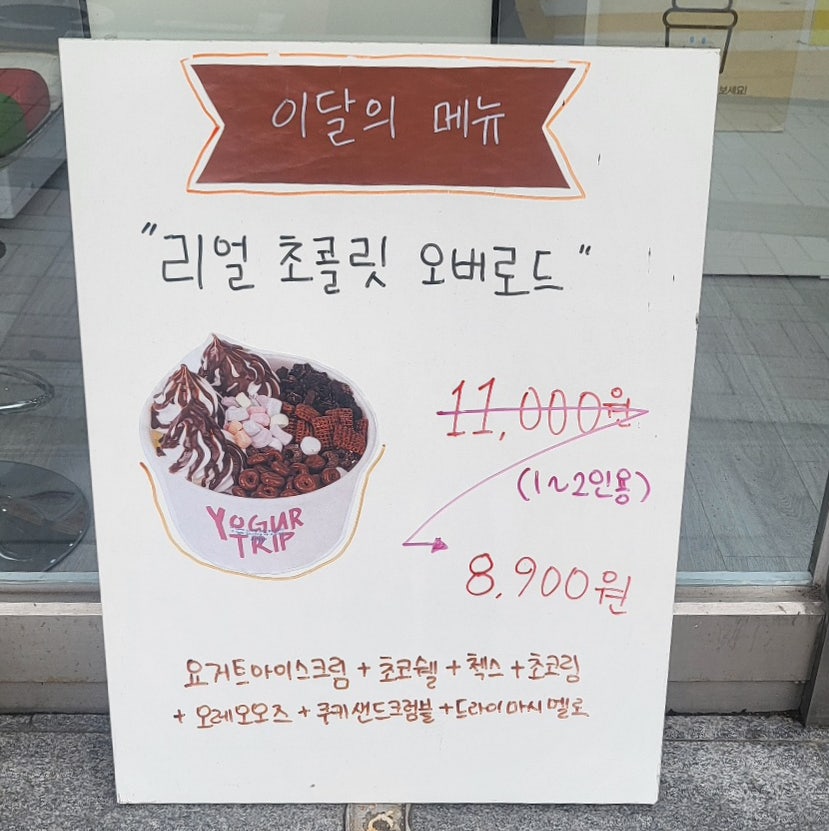 보세요!
이달의 메뉴
"리얼 초콜릿 오버로드"
11,000원
(1~2인용)
8,900원
YOGUR
TRIP
요거트아이스크림 + 초코쉘 + 첵스 + 초코링
+ 오레오오즈 + 쿠키샌드크럼블 + 드라이마시멜로